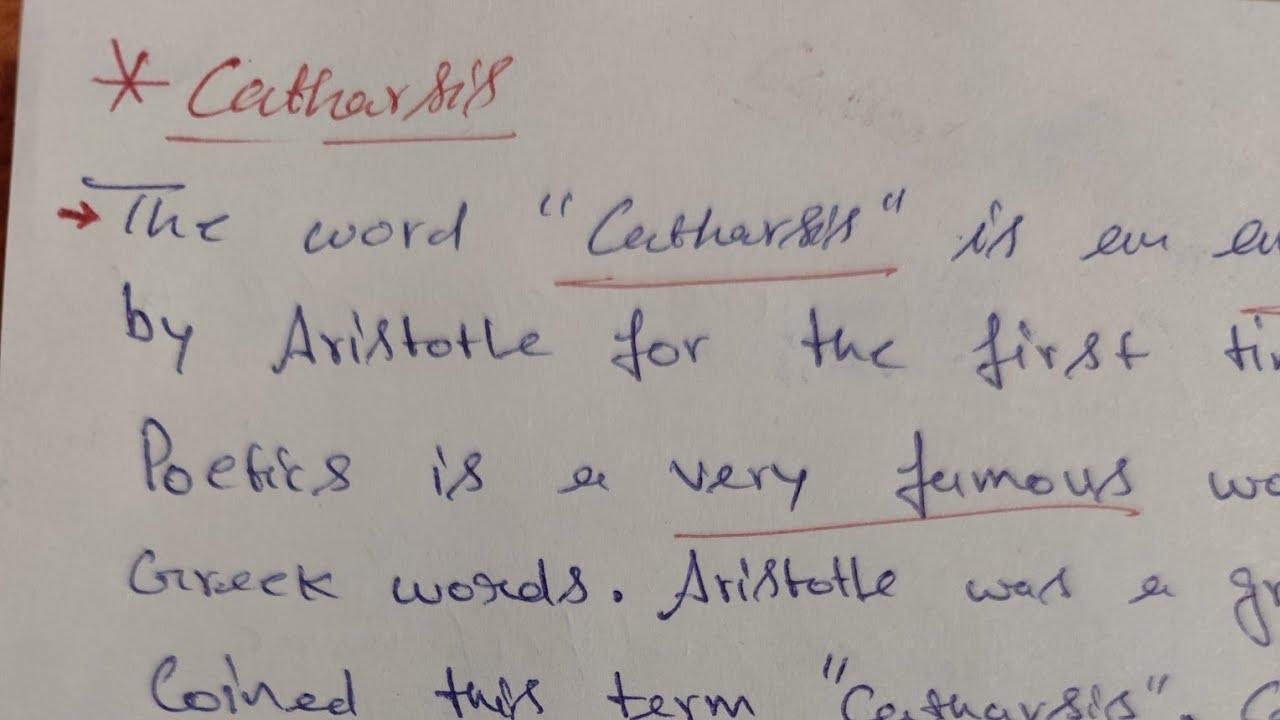 * Catharsis
→ The word "Catharsis" is an
by Aristotle for the first
Poetics is a very famous
Greek words. Aristotle was a
Coined this term "Catharsis".